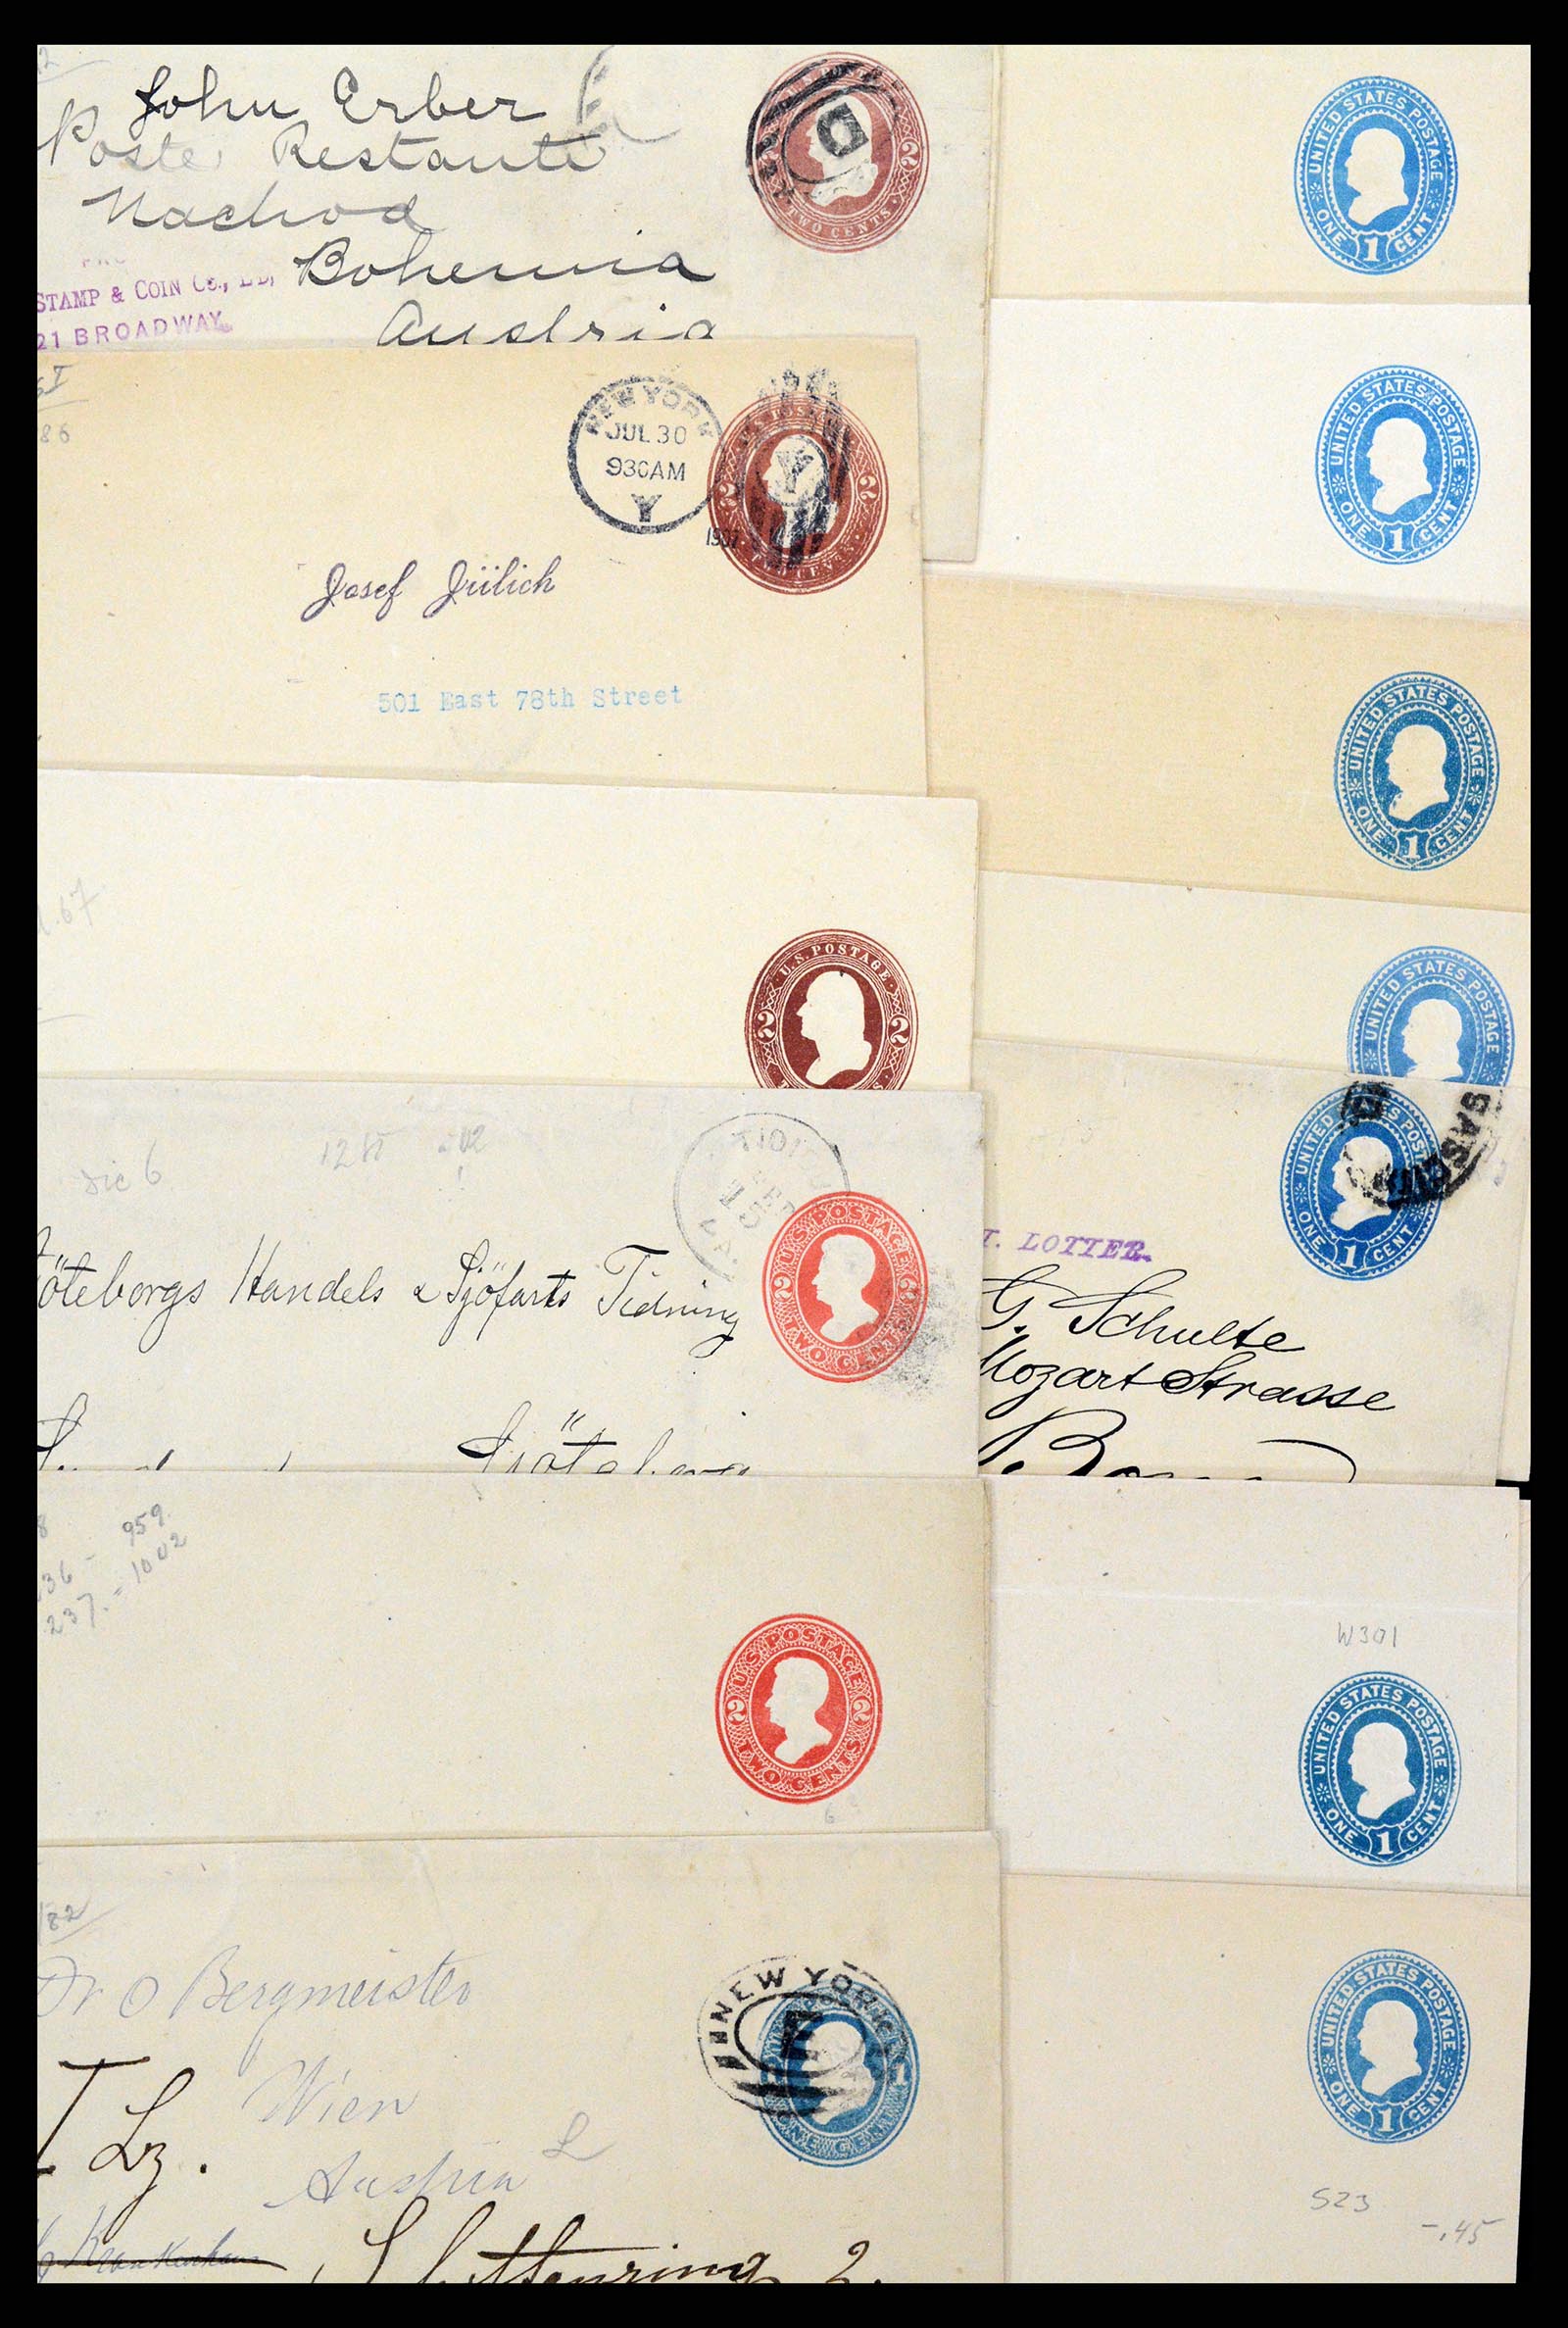 John Erber
Poste Restante
Nachod
Bohemia
Austria
STAMP & COIN Co.,
21 BROADWAY.
D
2
TWO CENTS
86
NEW YORK
JUL 30
930AM
Y
2 2
Josef Jülich
501 East 78th Street
.67
U.S. POSTAGE
2 2
12
Göteborgs Handels & Sjöfarts Tidning
Göteborg
U.S. POSTAGE
2 2
TWO CENTS
959.
36 -
237. - 1002
U.S. POSTAGE
2 2
TWO CENTS
82
Dr O Bergmeister
Wien
Austria
NEW YORK
F
1
ONE CENT
Krankenhaus
Schottenring 2.
UNITED STATES POSTAGE
ONE 1 CENT
UNITED STATES POSTAGE
ONE 1 CENT
UNITED STATES POSTAGE
ONE 1 CENT
UNITED STATES POSTAGE
UNITED STATES POSTAGE
ONE 1 CENT
LOTTER.
G. Schulte
Mozart Strasse
W301
UNITED STATES POSTAGE
ONE 1 CENT
UNITED STATES POSTAGE
ONE 1 CENT
S23
-.45